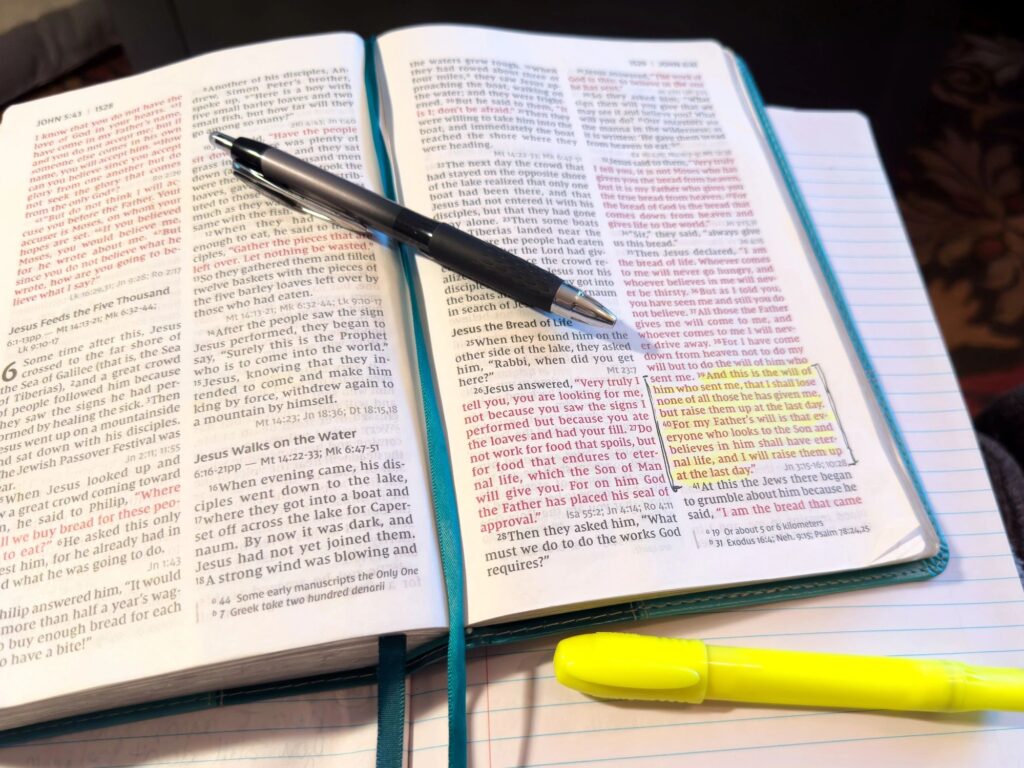 JOHN 5:43 | 1528
I know that you do not have the
love of God in your hearts. 43I
have come in my Father's name,
and you do not accept me; but if
someone else comes in his own
name, you will accept him. 44How
can you believe since you accept
glory from one another but do
not seek the glory that comes
from the only God?
45"But do not think I will ac-
cuse you before the Father. Your
accuser is Moses, on whom your
hopes are set. 46If you believed
Moses, you would believe me,
for he wrote about me. 47But
since you do not believe what he
wrote, how are you going to be-
lieve what I say?"
Jesus Feeds the Five Thousand
6:1-13pp — Mt 14:13-21; Mk 6:32-44;
Lk 9:10-17
6 Some time after this, Jesus
crossed to the far shore of
the Sea of Galilee (that is, the Sea
of Tiberias), 2and a great crowd
of people followed him because
they saw the signs he had per-
formed by healing the sick. 3Then
Jesus went up on a mountainside
and sat down with his disciples.
The Jewish Passover Festival was
near.
Jn 2:11; 11:55
5When Jesus looked up and
saw a great crowd coming toward
him, he said to Philip, "Where
shall we buy bread for these peo-
ple to eat?" 6He asked this only
to test him, for he already had in
mind what he was going to do.
Jn 1:43
Philip answered him, "It would
more than half a year's wag-
to buy enough bread for each
to have a bite!"
8Another of his disciples, An-
drew, Simon Peter's brother,
spoke up, 9"Here is a boy with
five small barley loaves and two
small fish, but how far will they
go among so many?"
"Have the people
sit down." There was plenty of
they sat
thousand men
took the
distrib-
uted to those
much as they
same with the fish.
12When they had
enough to eat, he said to his
"Gather the pieces that are
left over. Let nothing be wasted."
13So they gathered them and filled
twelve baskets with the pieces of
the five barley loaves left over by
those who had eaten.
14After the people saw the sign
Jesus performed, they began to
say, "Surely this is the Prophet
who is to come into the world."
15Jesus, knowing that they in-
tended to come and make him
king by force, withdrew again to
a mountain by himself.
Mt 14:23; Jn 18:36; Dt 18:15,18
Jesus Walks on the Water
6:16-21pp — Mt 14:22-33; Mk 6:47-51
16When evening came, his dis-
ciples went down to the lake,
17where they got into a boat and
set off across the lake for Caper-
naum. By now it was dark, and
Jesus had not yet joined them.
18A strong wind was blowing and
b 44 Some early manuscripts the Only One
b 7 Greek take two hundred denarii
the waters grew rough. 19When
they had rowed about three or
four miles, they saw Jesus ap-
proaching the boat, walking on
the water; and they were fright-
ened. 20But he said to them, "It
is I; don't be afraid." 21Then they
were willing to take him into the
boat, and immediately the boat
reached the shore where they
were heading.
Mt 14:22-33; Mk 6:47-51
22The next day the crowd that
had stayed on the opposite shore
of the lake realized that only one
boat had been there, and that
Jesus had not entered it with his
disciples, but that they had gone
away alone. 23Then some boats
Tiberias landed near the
where the people had eaten
after the Lord had giv-
the crowd re-
Jesus nor his
disciples got into
the boats
in search of Jesus.
Jesus the Bread of Life
25When they found him on the
other side of the lake, they asked
him, "Rabbi, when did you get
here?"
Mt 23:7
26Jesus answered, "Very truly I
tell you, you are looking for me,
not because you saw the signs I
performed but because you ate
the loaves and had your fill. 27Do
not work for food that spoils, but
for food that endures to eter-
nal life, which the Son of Man
will give you. For on him God
the Father has placed his seal of
approval."
Isa 55:2; Jn 4:14; Ro 4:11
28Then they asked him, "What
must we do to do the works God
requires?"
1529 | JOHN 6:41
29Jesus answered, "The work of
God is this: to believe in the one
he has sent."
30So they asked him, "What
sign then will you give that we
may see it and believe you? What
will you do? 31Our ancestors ate
the manna in the wilderness; as
it is written: 'He gave them bread
from heaven to eat.'"
32Jesus said to them, "Very truly
I tell you, it is not Moses who has
given you the bread from heaven,
but it is my Father who gives you
the true bread from heaven. 33For
the bread of God is the bread that
comes down from heaven and
gives life to the world."
34"Sir," they said, "always give
us this bread."
35Then Jesus declared, "I am
the bread of life. Whoever comes
to me will never go hungry, and
whoever believes in me will nev-
er be thirsty. 36But as I told you,
you have seen me and still you do
not believe. 37All those the Father
gives me will come to me, and
whoever comes to me I will nev-
er drive away. 38For I have come
down from heaven not to do my
will but to do the will of him who
sent me. 39And this is the will of
him who sent me, that I shall lose
none of all those he has given me,
but raise them up at the last day.
40For my Father's will is that ev-
eryone who looks to the Son and
believes in him shall have eter-
nal life, and I will raise them up
at the last day."
Jn 3:15-16; 10:28
41At this the Jews there began
to grumble about him because he
said, "I am the bread that came
a 19 Or about 5 or 6 kilometers
b 31 Exodus 16:4; Neh. 9:15; Psalm 78:24,25